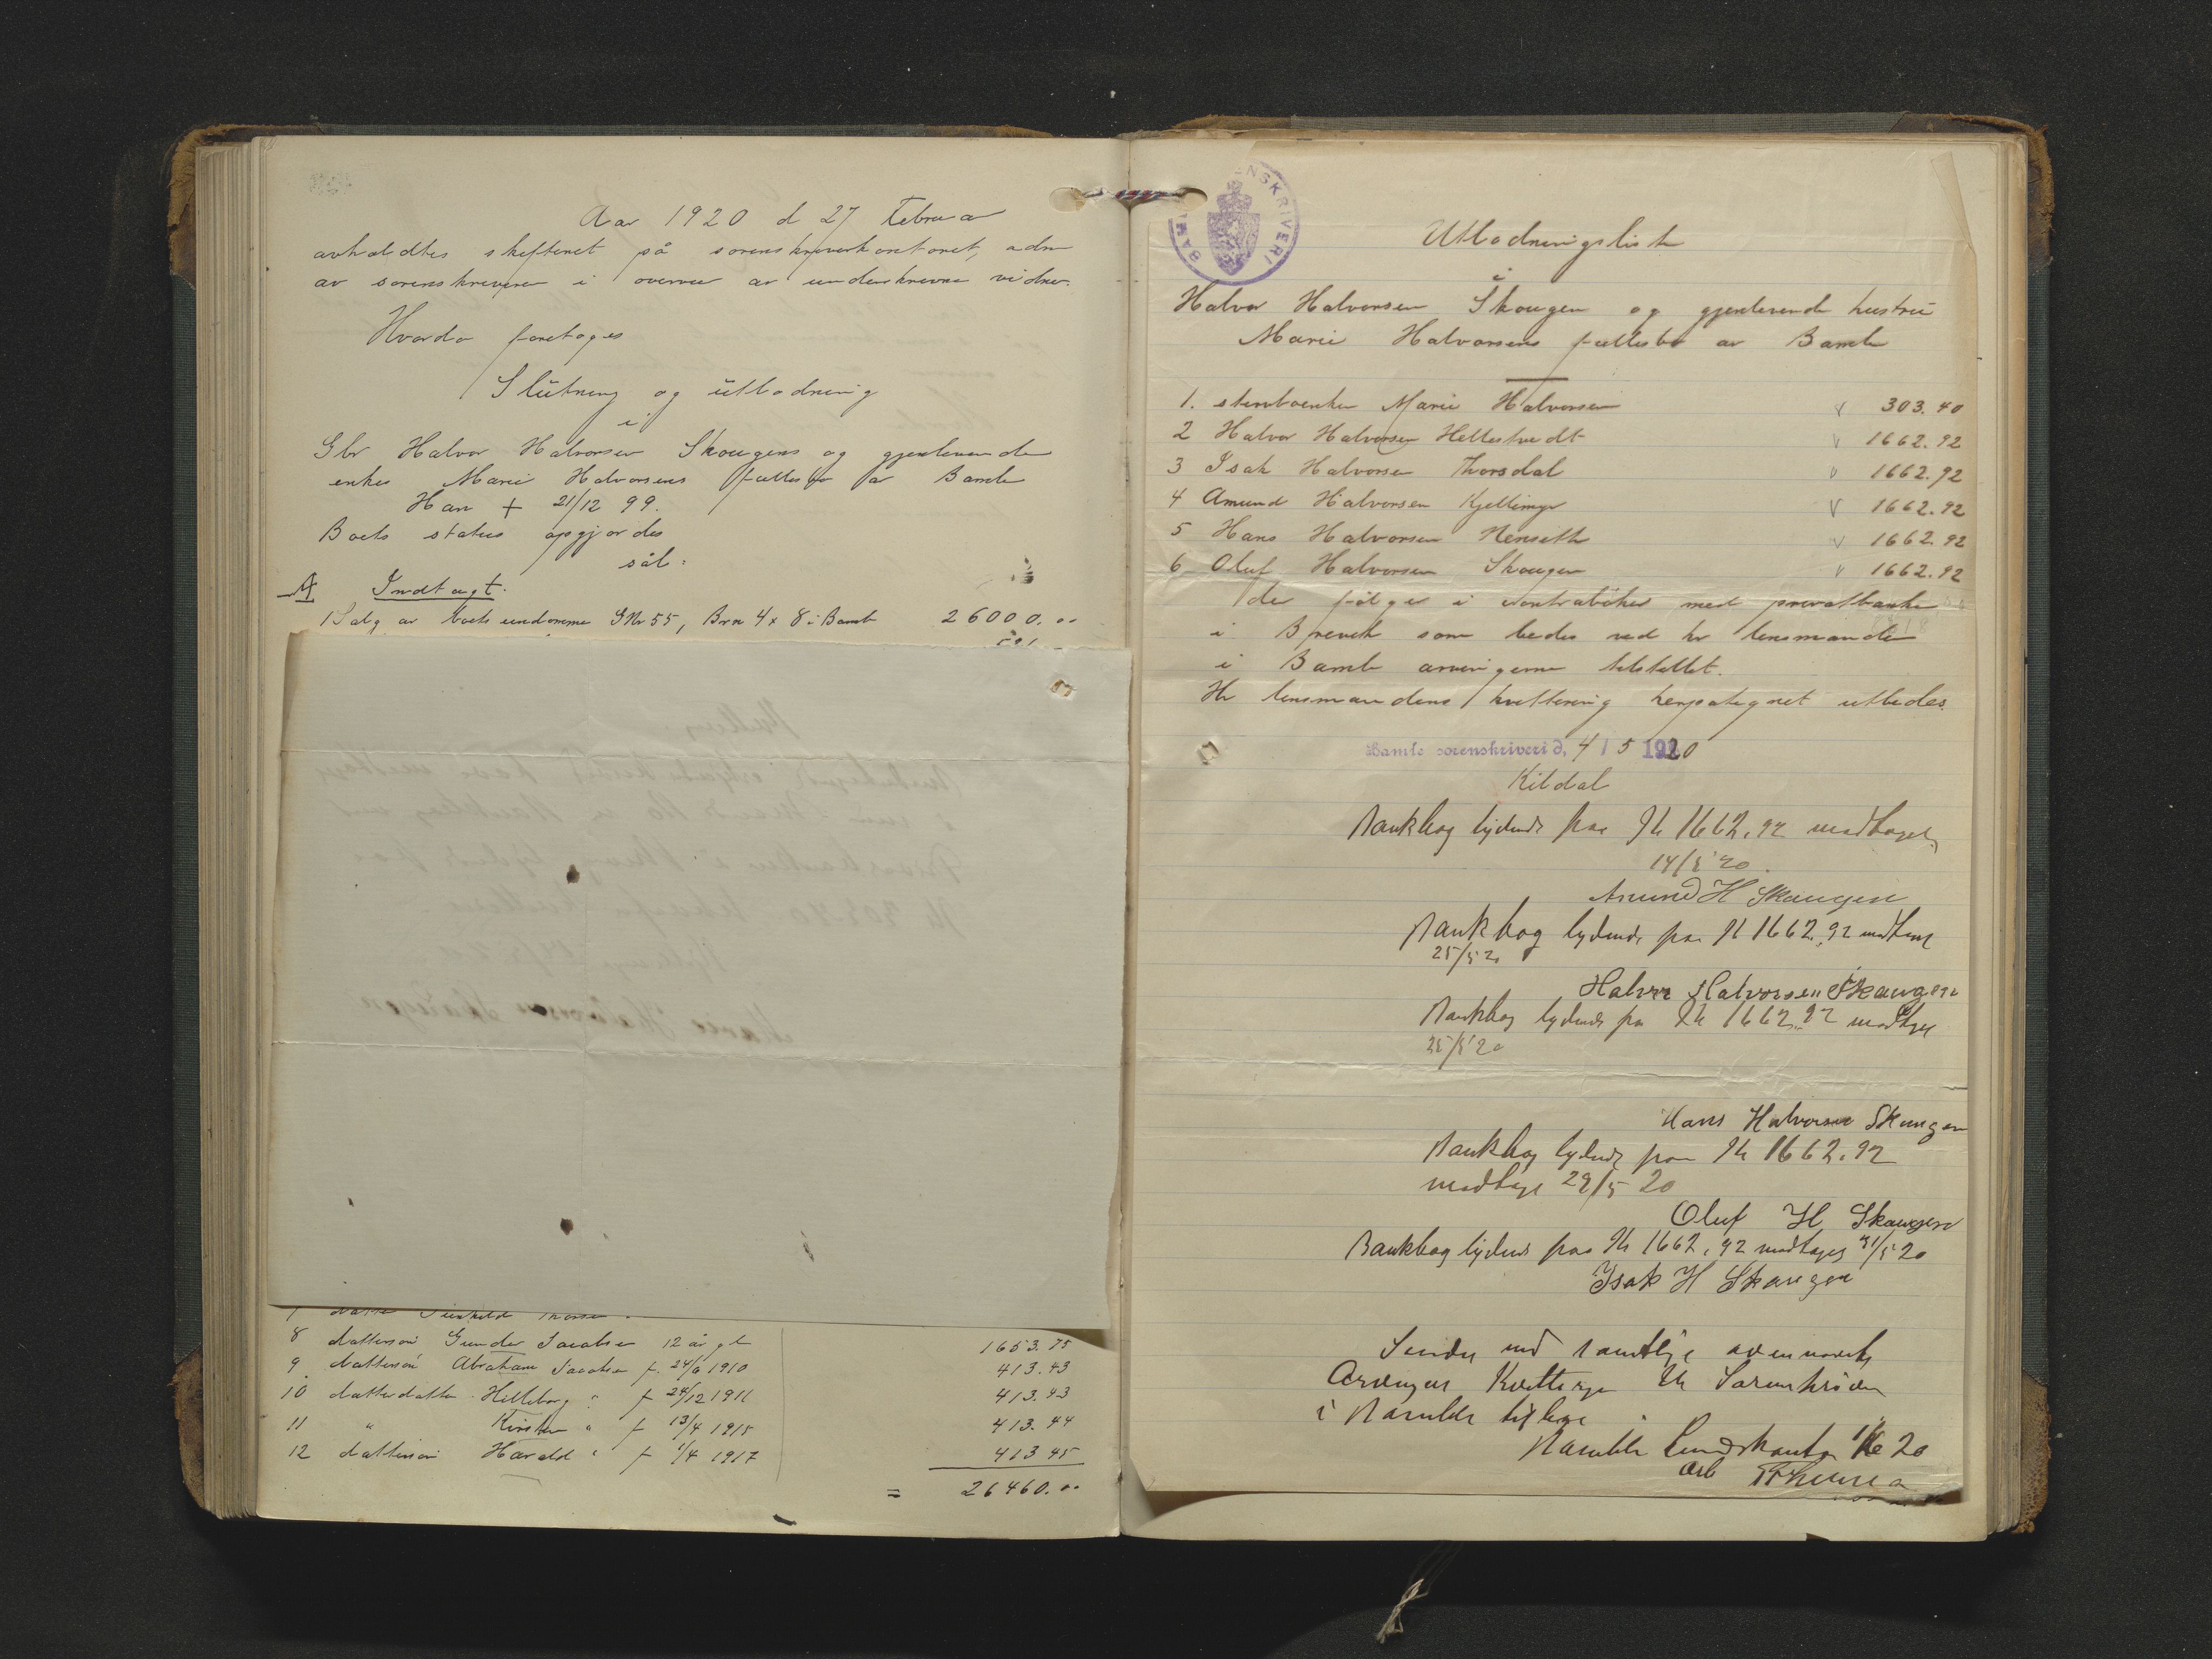 Aar 1920 d 27 Februar
avholdtes skifteret på sorenskriverkontoret, adm
av sorenskriveren i overvær av underskrevne vidner.
Hvorda foretoges
Slutning og utlodning
i
Gbr Halvor Halvorsen Skougens og gjenlevende
enkes Marie Halvorsens fællesbo av Bamle
Han + 21/12 99.
Boets status opgjordes
sål:
A Indtægt.
1 Salg av boets eiendomme GNr 55, Brn 4 x 8 i Bamle 26000.00
8 dattersøn Gunder Jacobsen 12 år gl 1653.75
9 dattersøn Abraham Jacobsen f. 24/6 1910 413.43
10 datterdatter Helleborg " f 24/12 1911 413.43
11 " Kirsten " f 13/4 1915 413.44
12 dattersøn Harald " f 1/4 1917 413 45
= 26460.00
BAM ENSKRIVERI
Utlodningsliste
i
Halvor Halvorsen Skougen og gjenlevende hustru
Marie Halvorsens fællesbo av Bamle
1. stervboenken Marie Halvorsen 303.40
2 Halvor Halvorsen Hellestvedt 1662.92
3 Isak Halvorsen Thorsdal 1662.92
4 Amund Halvorsen Kjellimyr 1662.92
5 Hans Halvorsen Henseth 1662.92
6 Oluf Halvorsen Skougen 1662.92
der følger i contrabøker med privatbanken
i Brevik som bedes ved hr lensmanden
i Bamle arvingerne tilstillet.
Hr lensmandens kvittering herpategnet utbedes.
Bamle sorenskriveri d. 4/5 1920
Kildal
Bankbog lydende paa Kr 1662,92 modtaget
14/5 20.
Amund H Skaugen
Bankbog lydende paa Kr 1662,92 modtaget
25/5 20
Halvor Halvorsen Skaugen
Bankbog lydende paa Kr 1662,92 modtaget
25/5 20
Hans Halvorsen Skaugen
Bankbog lydende paa Kr 1662.92
modtaget 29/5 20
Oluf H Skaugen
Bankbog lydende paa Kr 1662,92 modtaget 31/5 20
Isak H Skaugen
Sendes med samtlige
Arvingers Kvittering Hr Sorenskriveren
i Bamble tilbage.
Bamble 1/6 20